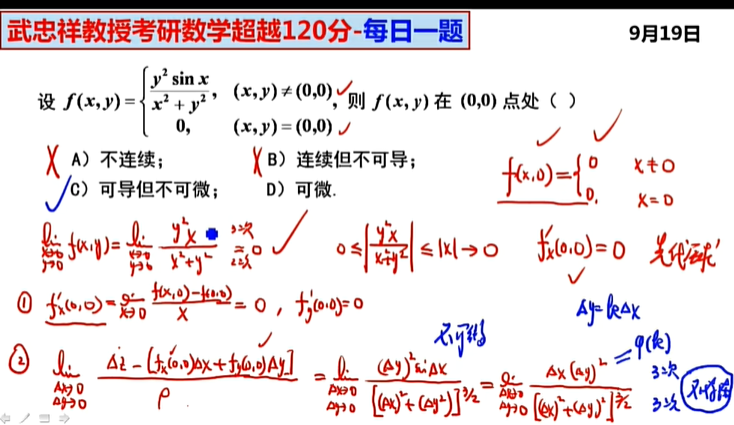 武忠祥教授考研数学超越120分-每日一题
9月19日
设 f(x,y)={ y² sin x / x² + y², (x,y)≠(0,0) ✓; 0, (x,y)=(0,0) ✓ , 则 f(x,y) 在 (0,0) 点处（ ）
A）不连续；
B）连续但不可导；
C）可导但不可微；
D）可微.
f(x,0)={ 0 x≠0; 0. x=0
lim x→0 y→0 f(x,y)= lim x→0 y→0 y²x / x²+y² 3次 = 2次 0
0≤| y²x / x²+y² | ≤|x|→0
f'x(0,0)=0
① f'x(0,0)= lim x→0 f(x,0)-f(0,0) / x =0 , f'y(0,0)=0
Δy=kΔx
② lim Δx→0 Δy→0 Δz-[fx(0,0)Δx+fy(0,0)Δy] / ρ = lim Δx→0 Δy→0 (Δy)² sinΔx / [(Δx)²+(Δy²)]^3/2 = lim Δx→0 Δy→0 Δx(Δy)² / [(Δx)²+(Δy)²]^3/2 = φ(k)
3次
3次